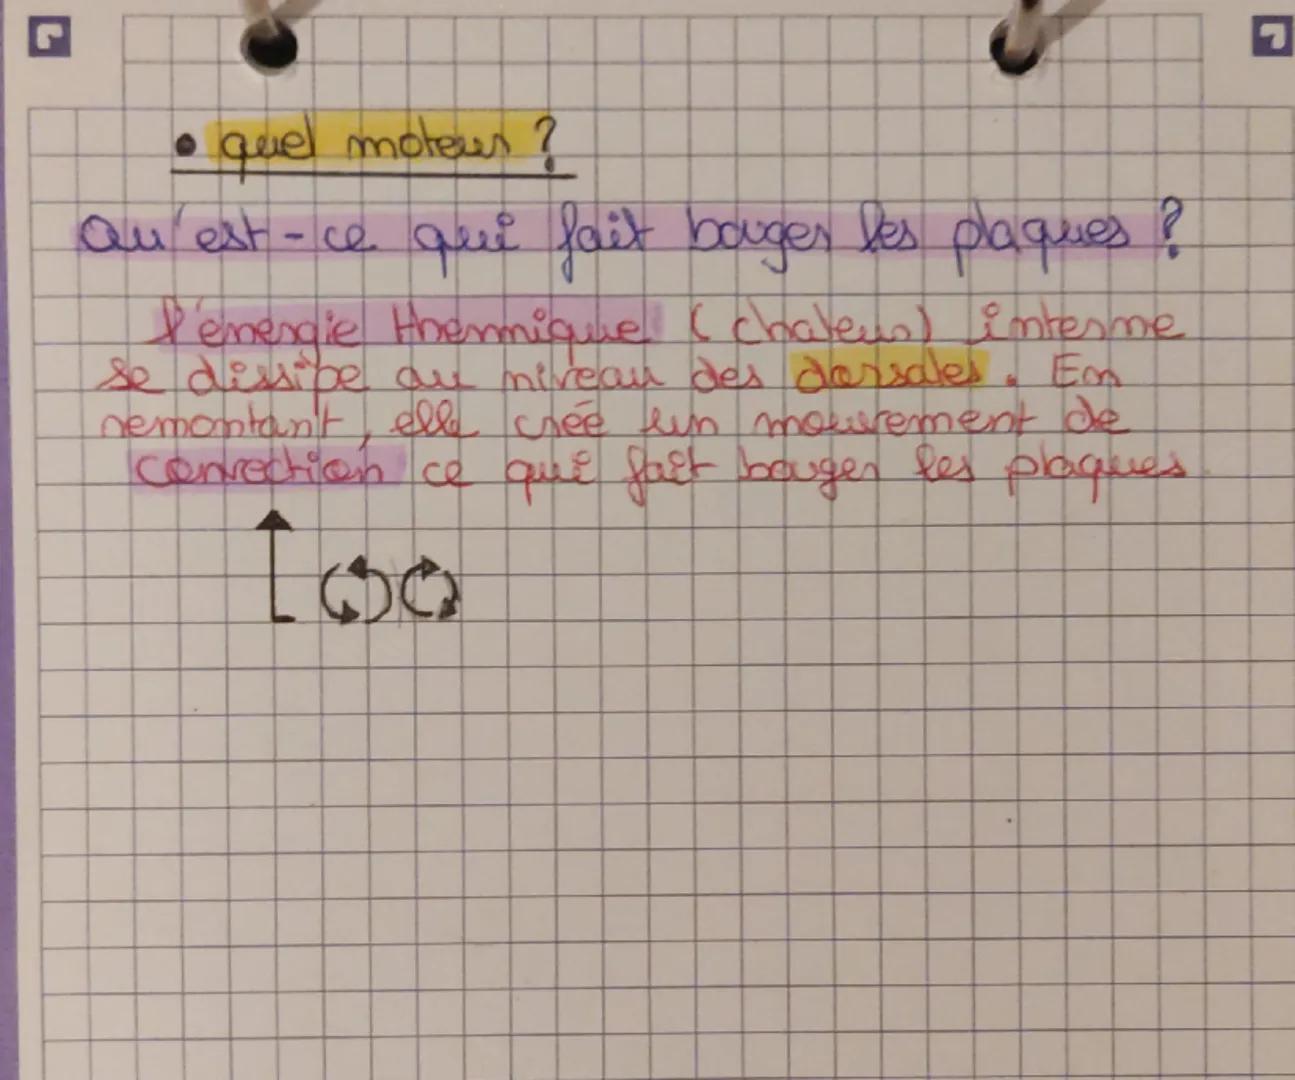 • quel moteur ?
Qu'est-ce qui fait bouger les plaques ?
l'énergie thermique (chaleur) interne
se dissipe au niveau des dorsales. En
remontant, elle crée un mouvement de
convection ce qui fait bouger les plaques